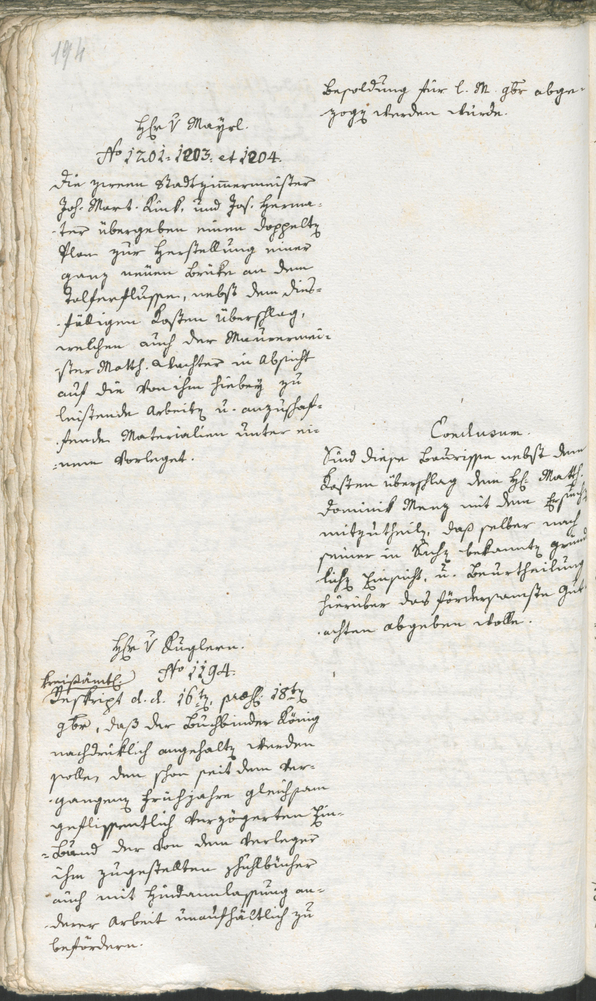 194
Besoldung für l. M. 9br abge-
zogen werden würde.
Hr. v Mayrl.
No 1201. 1203. et 1204.
Die zween Stadtzimmermeister
Joh. Mart. Kink, und Jos. Herma-
ter übergeben einen doppelten
Plan zur Herstellung einer
ganz neuen Brüke an dem
Talferflusse, nebst dem dies-
fälligen Kosten überschlag,
welchen auch der Maurermei-
ster Matth. Wachter in Absicht
auf die von ihm hiebey zu
leistende Arbeiten u. anzuschaf-
fende Materialien unter ei-
nem vorleget.
Conclusum.
Sind diese Baurisse nebst dem
Kosten überschlag dem H. Matth.
Dominik Menz mit dem Ersuchen
mitzutheilen, daß selber nach
seiner in Sachen bekannten gründ
lichen Einsicht, u. Beurtheilung
hierüber das fördersamste Gut-
achten abgeben wolle.
Hr. v Kuglern.
No 1194.
kreisämtl.
Reskript d. d. 16ten, praes. 18ten
9br, daß der Buchbinder König
nachdrüklich angehalten werden
solle, den schon seit dem ver-
gangenen Frühjahre gleichsam
geflissentlich verzögerten Ein-
bund der von dem Verleger
ihm zugestellten Schulbücher
auch mit Hindannlassung an-
derer Arbeit unaufhältlich zu
befördern.